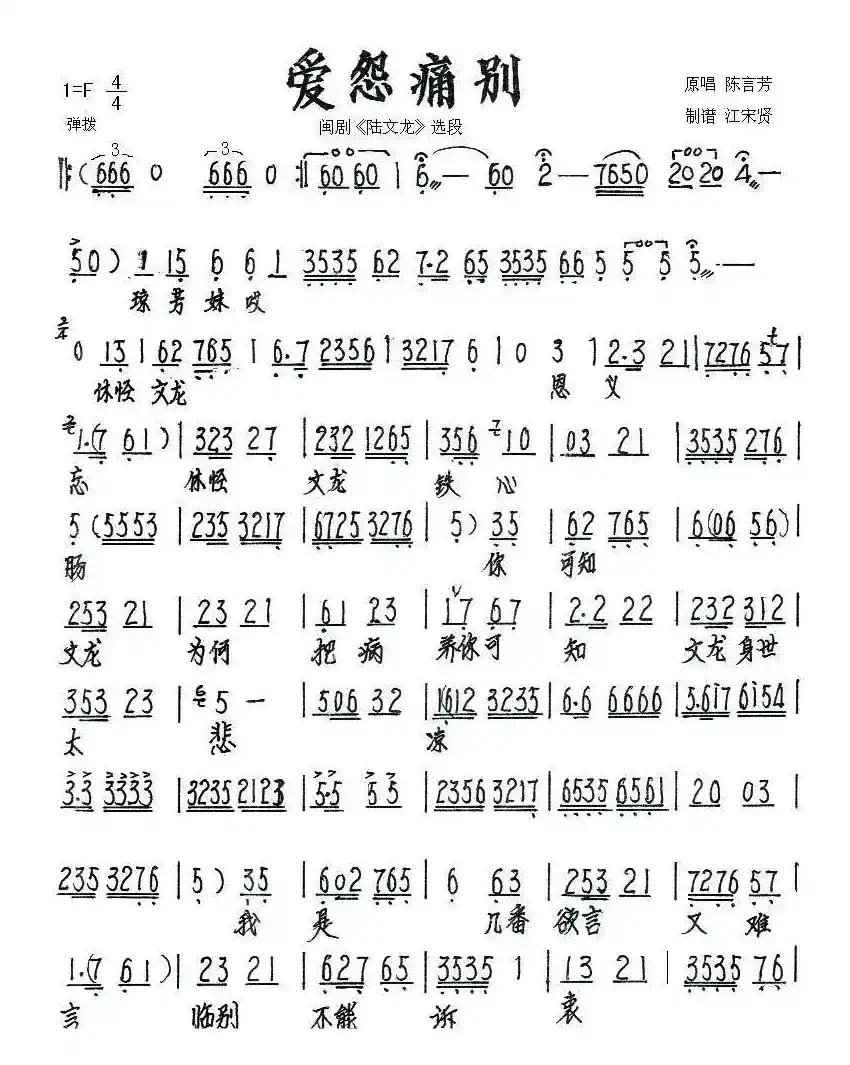 爱怨痛别
1=F 4/4
弹拨
闽剧《陆文龙》选段
原唱 陈言芳
制谱 江宋贤
3 3
(666 0 666 0 :‖ 60 60 | 6 — 60 2 — 7650 20 20 4 —
50 ) 1 15 6 6 1 3535 62 7·2 65 3535 66 5 5 5 5 —
琼 芳 妹 哎
0 13 | 62 765 | 6·7 2356 | 3217 6 | 0 3 | 2·3 21 | 7276 57 |
休怪 文龙 恩 义
1·(7 61 ) | 323 27 | 232 1265 | 356 10 | 03 21 | 3535 276 |
忘 休怪 文龙 铁 心
5 ( 5553 | 235 3217 | 6725 3276 | 5 ) 35 | 62 765 | 6(06 56) |
肠 你 可知
253 21 | 23 21 | 61 23 | 17 67 | 2·2 22 | 232 312 |
文龙 为何 把 病 养你可 知 文龙身世
353 23 | 5 — | 506 32 | 1612 3235 | 6·6 6666 | 5·617 6154 |
太 悲 凉
3·3 3333 | 3235 2123 | 5·5 5 5 | 2356 3217 | 6535 6561 | 20 03 |
235 3276 | 5 ) 35 | 602 765 | 6 63 | 253 21 | 7276 57 |
我 是 几番 欲言 又 难
1·(7 61 ) | 23 21 | 627 65 | 3535 1 | 13 21 | 3535 76 |
言 临别 不能 诉 衷